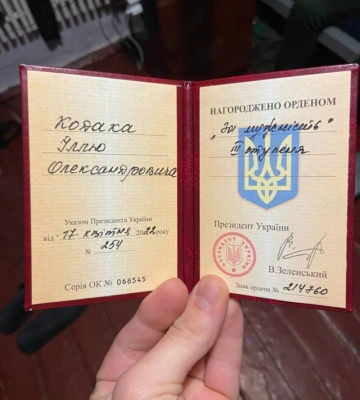 Кодака
Іллю
Олександровича
Указом Президента України
від 17 квітня 2022 року
№ 254
Серія ОК № 068545
НАГОРОДЖЕНО ОРДЕНОМ
„За мужність"
ІІІ ступеня
Президент України
В.Зеленський
Знак ордена № 214760